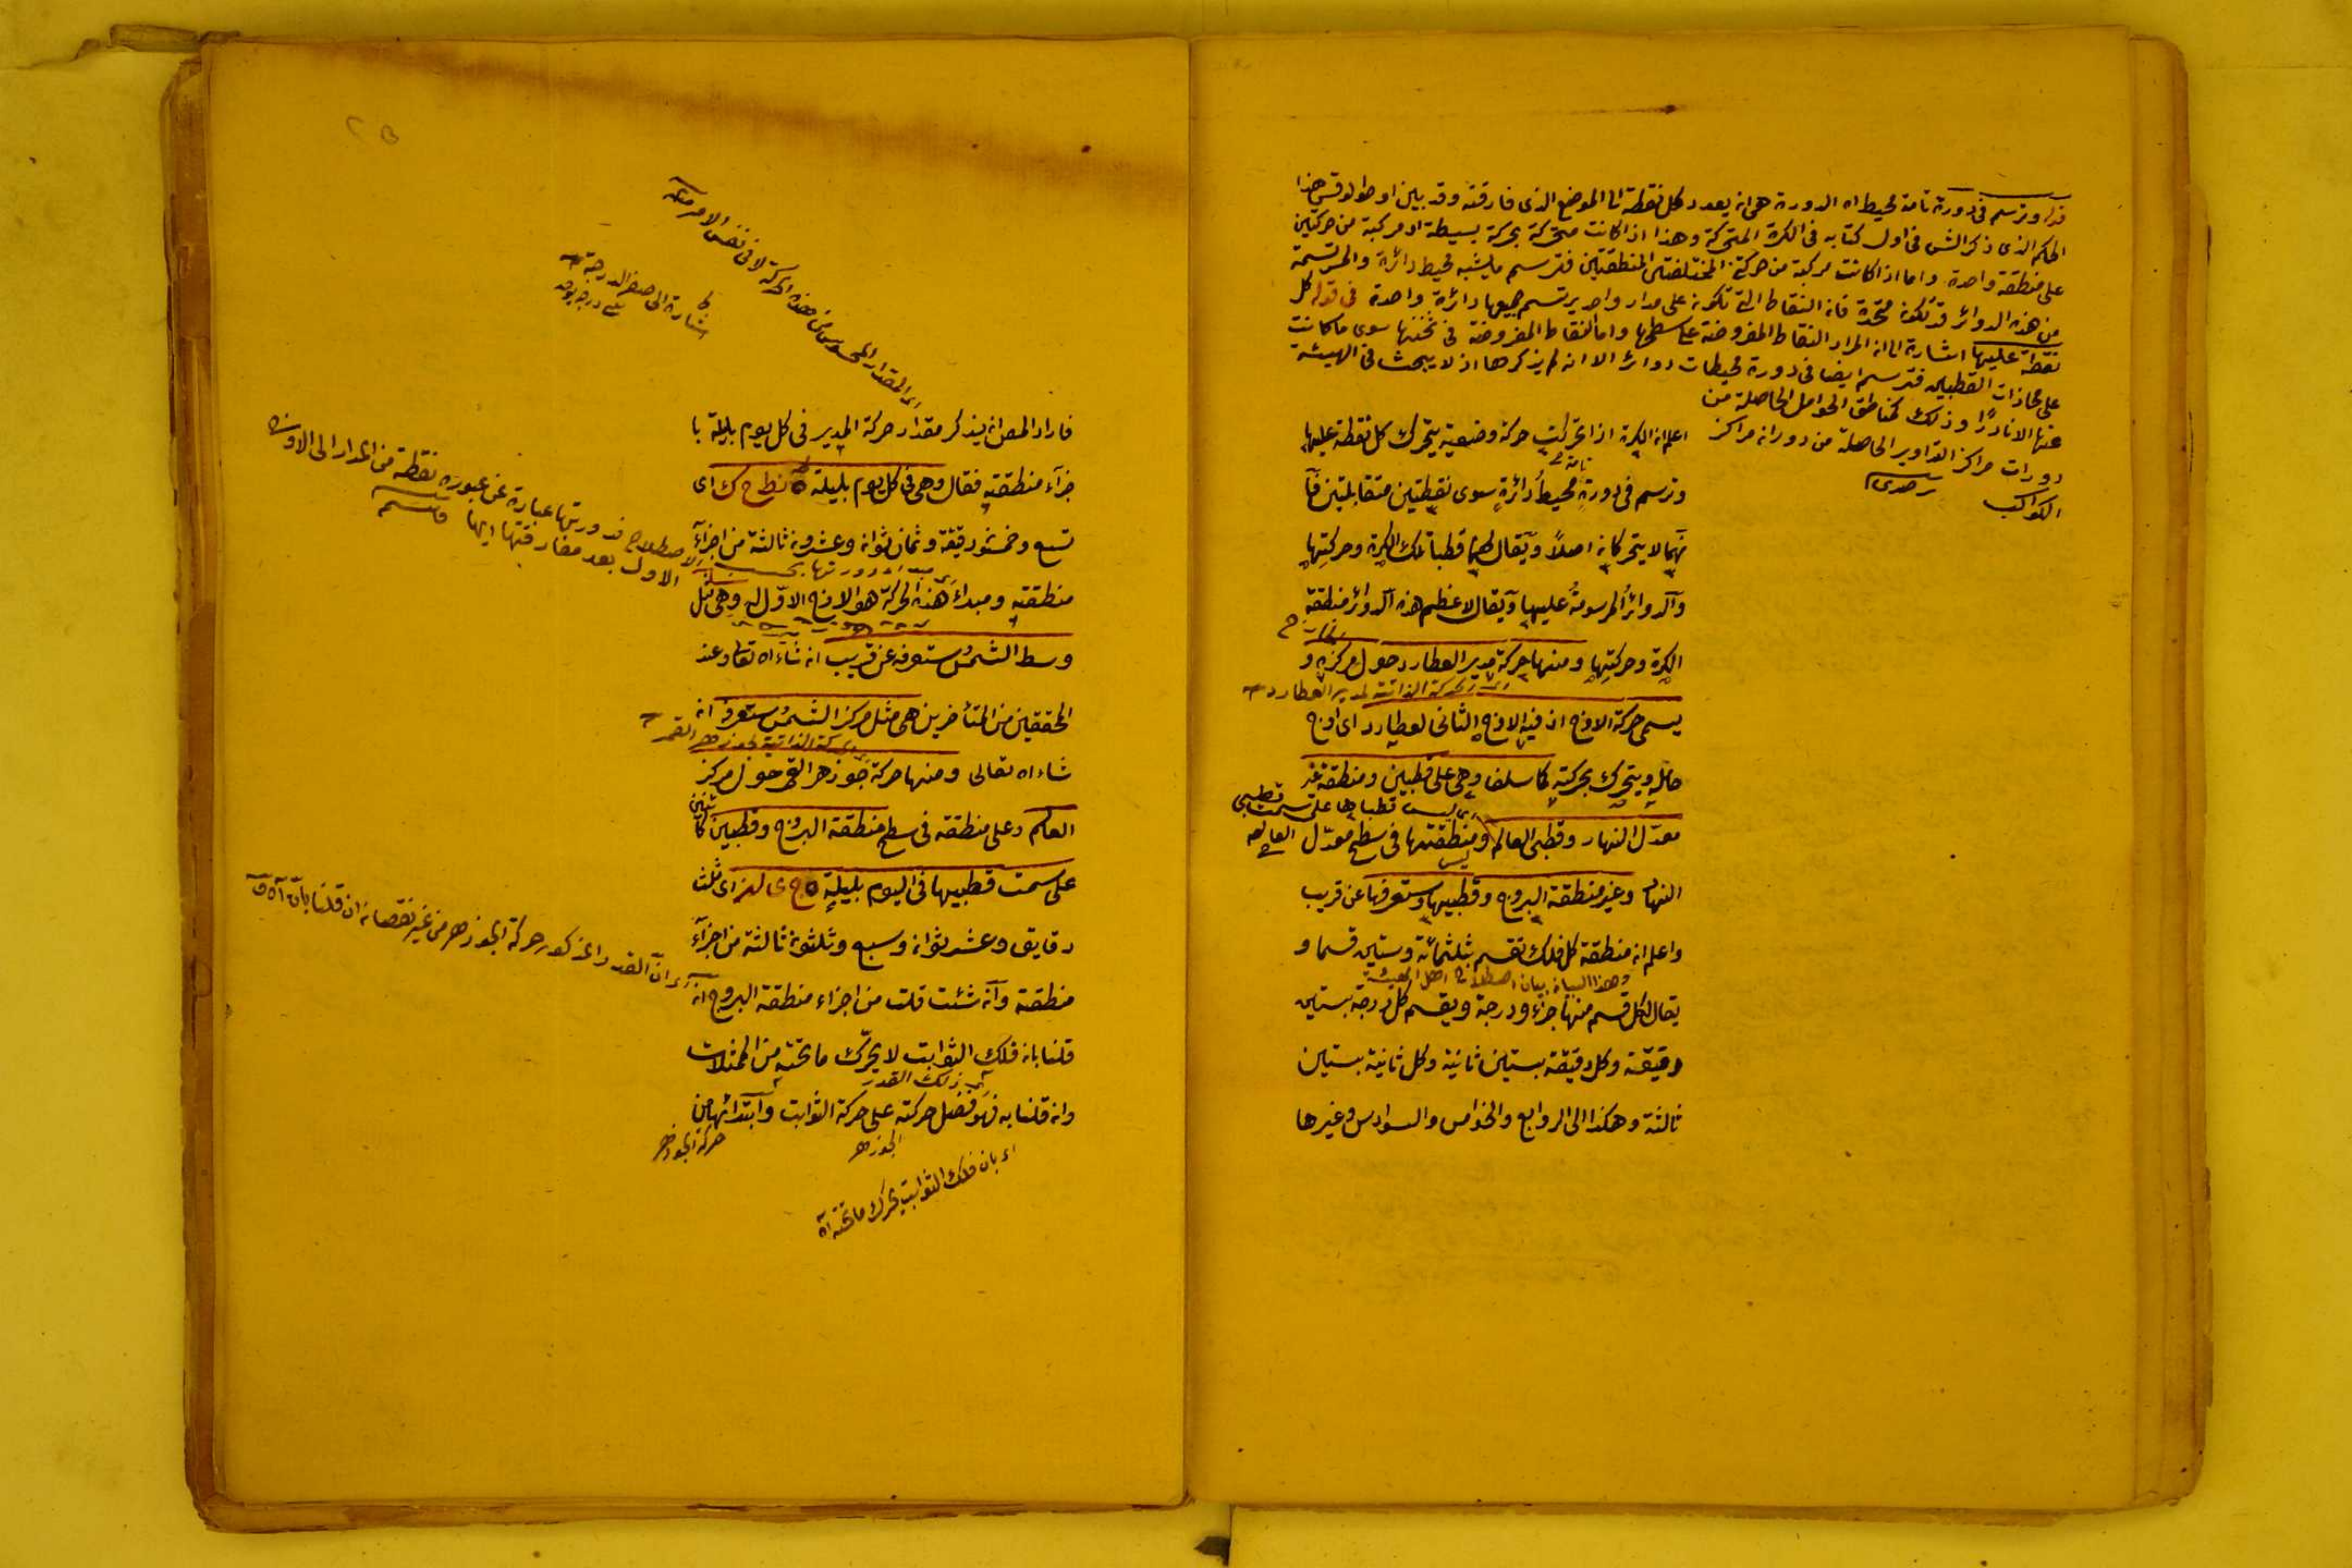 قوله وترسم في دورة تامة محيط اه الدورة هي ان يعود كل نقطة الى الموضع الذي فارقته وقد بين اوطولوقس هذا
الحكم الذي ذكر الش في اول كتابه في الكرة المتحركة وهذا اذا كانت متحركة بحركة بسيطة او مركبة من حركتين
على منطقة واحدة واما اذا كانت مركبة من حركتين المختلفتى المنطقتين فترسم ما يشبه محيط دائرة والمرتسمة
من هذه الدوائر قد تكون متحدة فان النقاط التي تكون على مدار واحد يرتسم جميعها دائرة واحدة في قوله كل
نقطة عليها اشارة الى ان المراد النقاط المفروضة على سطحها واما النقاط المفروضة في ثخنها سوى ما كانت
على محاذات القطبين فترسم ايضا في دورة محيطات دوائر الا انه لم يذكرها اذ لا يبحث في الهيئة
عنها الا نادرًا وذلك كمناطق الحوامل الحاصلة من
دورات مراكز التداوير الحاصلة من دوران مراكز
الكواكب
اعلم ان الكرة اذا تحركت حركة وضعية يتحرك كل نقطة عليها
تامة
وترسم في دورة محيط دائرة سوى نقطتين متقابلتين فا
نهما لا يتحركان اصلاً ويقال لهما قطبا تلك الكرة وحركتها
والدوائر المرسومة عليها ويقال لاعظم هذه الدوائر منطقة
الكرة وحركتها ومنها حركة مدير العطارد حول مركزه و
اى الحركة الذاتية لمدير العطارد
يسمى حركة الاوج اذ فيه الاوج الثاني لعطارد اى اوج
حامله ويتحرك بحركته كما سلف وهي على قطبين ومنطقة غير
اى ليس قطباها على سمت قطبي
معدل النهار وقطبى العالم ومنطقتها في سطح معدل
العالم
ليس
النهار وغير منطقة البروج وقطبيها وستعرفها عن قريب
واعلم ان منطقة كل فلك تقسم بثلثمائة وستين قسما و
وهذا البيان بيان اصطلاح اهل الهيئة
يقال لكل قسم منها جزء ودرجة ويقسم كل درجة بستين
دقيقة وكل دقيقة بستين ثانية وكل ثانية بستين
ثالثة وهكذا الى الروابع والخوامس والسوادس وغيرها
اى المقدار المحسوس من هذه الحركة لا في نفس الامر منه
اشارة الى صفر الدرجة
فاراد المص ان يذكر مقدار حركة المدير في كل يوم بليلة با
جزآء منطقته فقال وهي في كل يوم بليلة ٥ نط ح ك اى
تسع وخمسون دقيقة وثمان ثوان وعشرون ثالثة من اجزآء
منطقته ومبداء هذه الحركة هو الاوج الاول وهي مثل
وسط الشمس ستعرفه عن قريب ان شاء اه تعالى وعند
المحققين من المتأخرين هي مثل مركز الشمس ستعرف ان
اى الحركة الذاتية لجوزهر القمر
شاء اه تعالى ومنها حركة جوزهر القمر حول مركز
العالم وعلى منطقة في سطح منطقة البروج وقطبين كائنين
على سمت قطبيها في اليوم بليلة ٥ ج ى لز اى ثلث
دقايق وعشر ثوان وسبع وثلثون ثالثة من اجزآء
منطقته وان شئت قلت من اجزاء منطقة البروج ان
قلنا بان فلك الثوابت لا يحرك ما تحته من الممثلات
اى ذلك القدر
وان قلنا به فهو فضل حركته على حركة الثوابت وابتدائها من
الجوزهر
حركة الجوزهر
اى بان فلك الثوابت يحرك ما تحته اه
الاصطلاح ودورتها عبارة عن عبوره نقطة من المدار الى الاوج
الاول بعد مفارقتها ايها
اى ان القدر المذكور حركة الجوزهر من غير نقصان ان قلنا بان اه